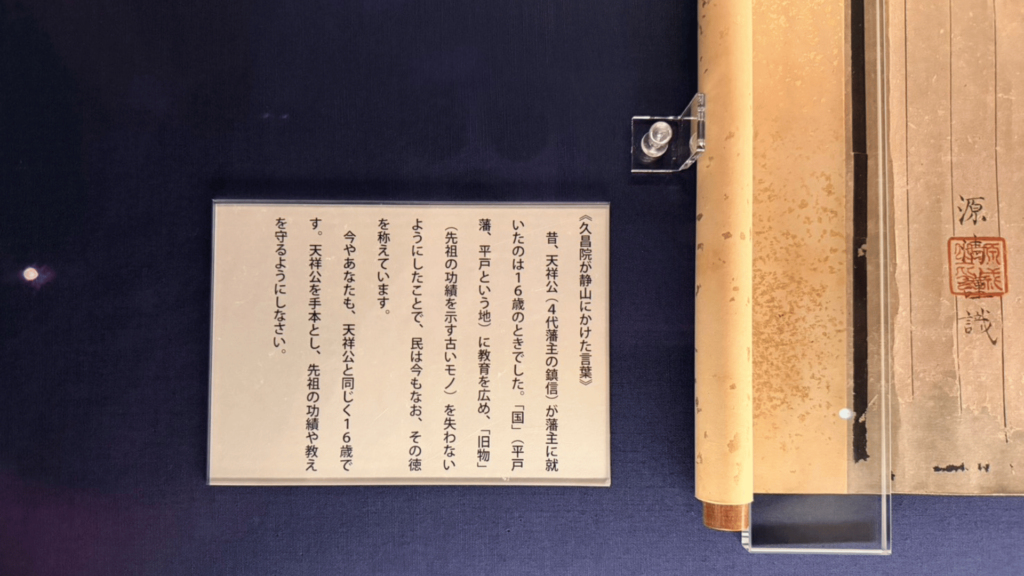 《久昌院が静山にかけた言葉》
昔、天祥公（４代藩主の鎮信）が藩主に就
いたのは１６歳のときでした。「国」（平戸
藩、平戸という地）に教育を広め、「旧物」
（先祖の功績を示す古いモノ）を失わない
ようにしたことで、民は今もなお、その徳
を称えています。
今やあなたも、天祥公と同じく１６歳で
す。天祥公を手本とし、先祖の功績や教え
を守るようにしなさい。
源
識